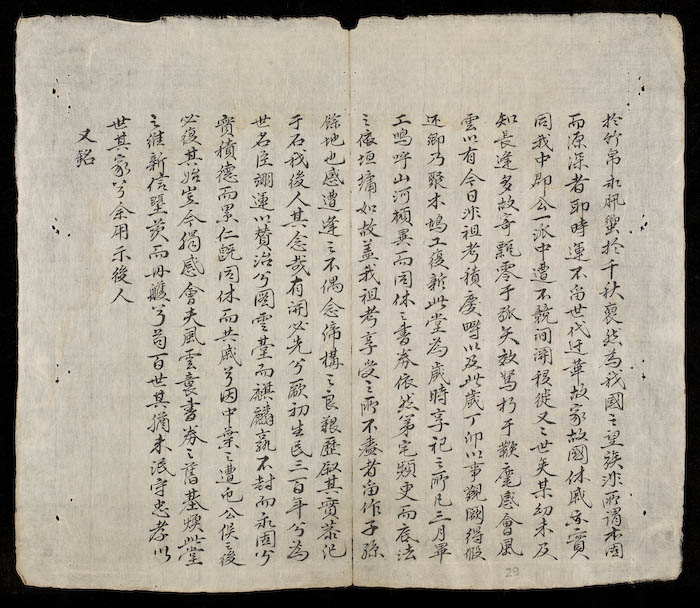 於竹帛永肸蠁於千秋裒然為我國之望族非所謂本固
而源深者耶時運不留世代迁革故家故國休戚實
同我中郎公一派中遭不競間關移徙又之世失某幼未及
知長逢多故寄飄零于弧矢效駑朽于麾感會風
雲以有今日非祖考積慶疇以及此歲丁卯以事覲闕得假
还鄉乃聚木鳩工復新此堂為歲時享祀之所凡三月畢
工鳴呼山河頓異而同休之書券依然第宅頻更而底法
之依垣墉如故盖我祖考享受之所不盡者留作子孫
餘地也感遭逢之不偶念締構之良艱歷叙其實恭記
于石我後人其念哉有開必先兮厥初生民三百年兮為
世名臣翊運以贊治兮圖雲臺而麒麟孰不封而永固兮
實積德而累仁既同休而共戚兮因中葉之遭屯公侯之後
必復其始豈今獨感會夫風雲書券之舊基煥此堂
之維新信墍茨而丹雘兮苟百世其猶未泯守忠孝以
世其家兮余用示後人
又銘
29